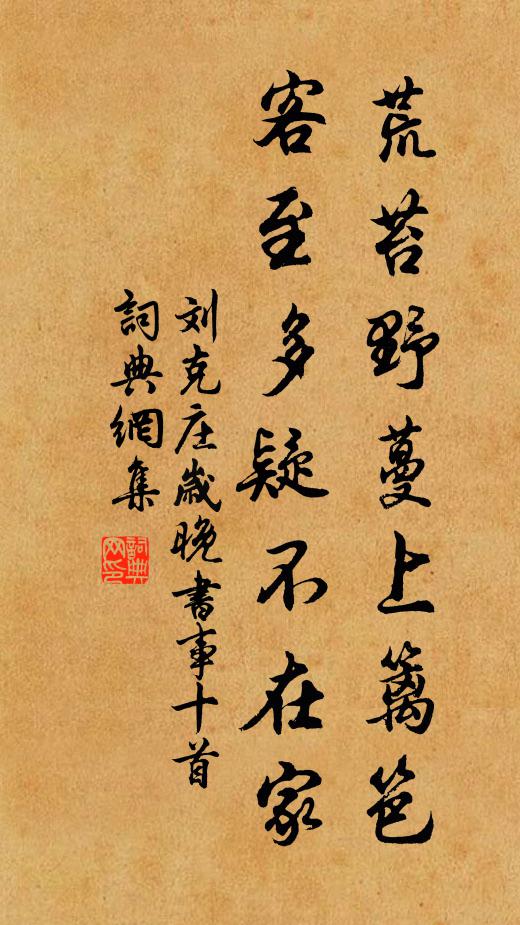 荒苔野蔓上篱笆
客至多疑不在家
刘克庄歲晚書事十首
詞典網集
詞典网印